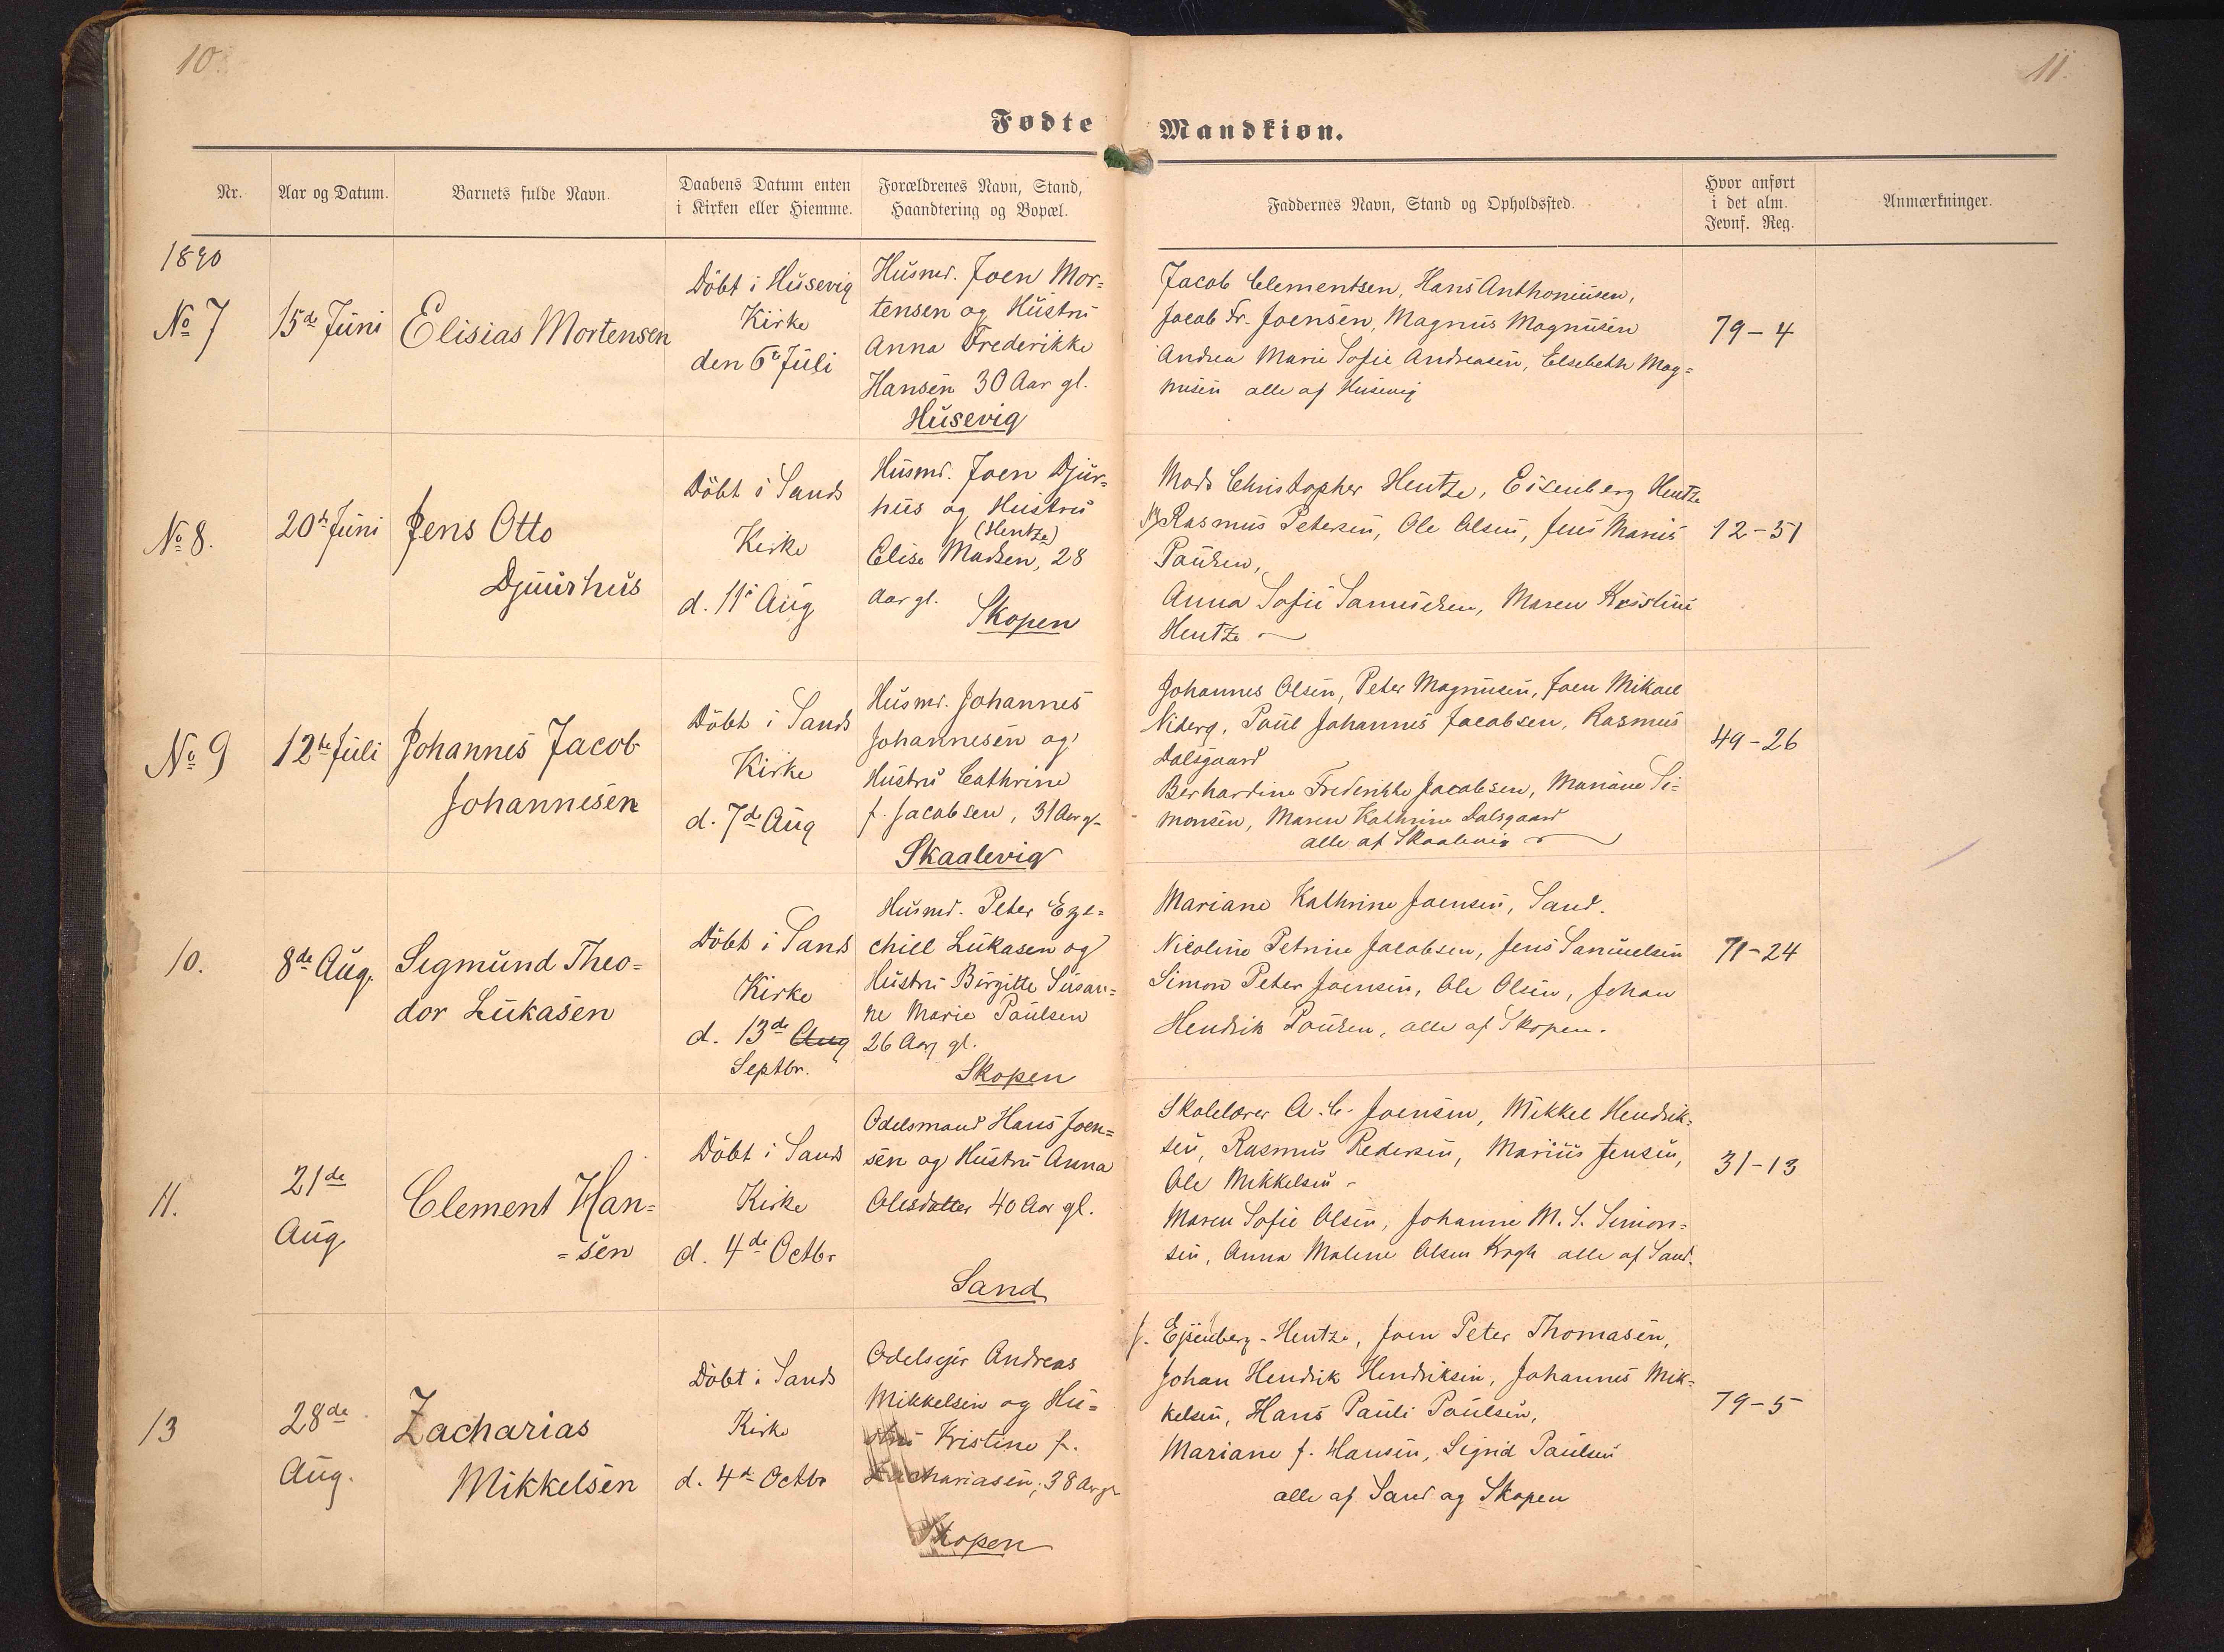 10.
11.
Fødte
Mandkiøn.
Nr.
Aar og Datum.
Barnets fulde Navn.
Daabens Datum enten
i Kirken eller Hiemme.
Forældrenes Navn, Stand,
Haandtering og Bopæl.
Faddernes Navn, Stand og Opholdssted.
Hvor anført
i det alm.
Jevnf. Reg.
Anmærkninger.
1890
No 7
15de Juni
Elisias Mortensen
Döbt i Husevig
Kirke
den 6te Juli
Husmd. Joen Mor=
tensen og Hustru
Anna Frederikke
Hansen 30 Aar gl.
Husevig
Jacob Clementsen, Hans Anthoniusen,
Jacob Fr. Joensen, Magnus Magnusen
Andrea Marie Sofie Andreasen, Elsebeth Mag=
nusen alle af Husevig
79-4
No 8.
20de Juni
Jens Otto
Djuurhus
Döbt i Sands
Kirke
d. 11te Aug
Husmd. Joen Djur=
hus og Hustru
(Hentze)
Elise Madsen, 28
Aar gl.
Skopen
Mads Christopher Hentze, Eisenberg Hentze
Rasmus Petersen, Ole Olsen, Jens Marius
Poulsen,
Anna Sofie Samuelsen, Maren Kristine
Hentze
12-51
No 9
12te Juli
Johannes Jacob
Johannesen
Döbt i Sands
Kirke
d. 7de Aug
Husmd. Johannes
Johannesen og
Hustru Cathrine
f. Jacobsen, 31 Aar gl
Skaalevig
Johannes Olsen, Peter Magnusen, Joen Mikael
Viberg, Poul Johannes Jacobsen, Rasmus
Dalsgaard
Berhardine Frederikke Jacobsen, Mariane Si=
monsen, Maren Kathrine Dalsgaard
alle af Skaalevig
49-26
10.
8de Aug.
Sigmund Theo=
dor Lukasen
Döbt i Sands
Kirke
d. 13de Aug
Septbr.
Husmd. Peter Eze=
chiel Lukasen og
Hustru Birgitte Susan=
ne Marie Poulsen
26 Aar gl.
Skopen
Mariane Kathrine Joensen, Sand.
Nicoline Petrine Jacobsen, Jens Samuelsen
Simon Peter Joensen, Ole Olsen, Johan
Hendrik Poulsen, alle af Skopen.
71-24
11.
21de
Aug.
Clement Han=
=sen
Döbt i Sands
Kirke
d. 4de Octbr
Odelsmand Hans Joen=
sen og Hustru Anna
Olesdatter 40 Aar gl.
Sand
Skolelærer A. C. Joensen, Mikkel Hendrik=
sen, Rasmus Pedersen, Marius Jensen,
Ole Mikkelsen -
Maren Sofie Olsen, Johanne M. S. Simon=
sen, Anna Malene Olsen Krogh alle af Sand.
31-13
13
28de
Aug.
Zacharias
Mikkelsen
Döbt i Sands
Kirke
d. 4de Octbr
Odelsejer Andreas
Mikkelsen og Hu=
stru Kristine f.
Zachariasen, 38 Aar gl
Skopen
J. Ejsenberg-Hentze, Joen Peter Thomasen,
Johan Hendrik Hendriksen, Johannes Mik=
kelsen, Hans Pauli Poulsen,
Mariane f. Hansen, Sigrid Poulsen
alle af Sand og Skopen
79-5